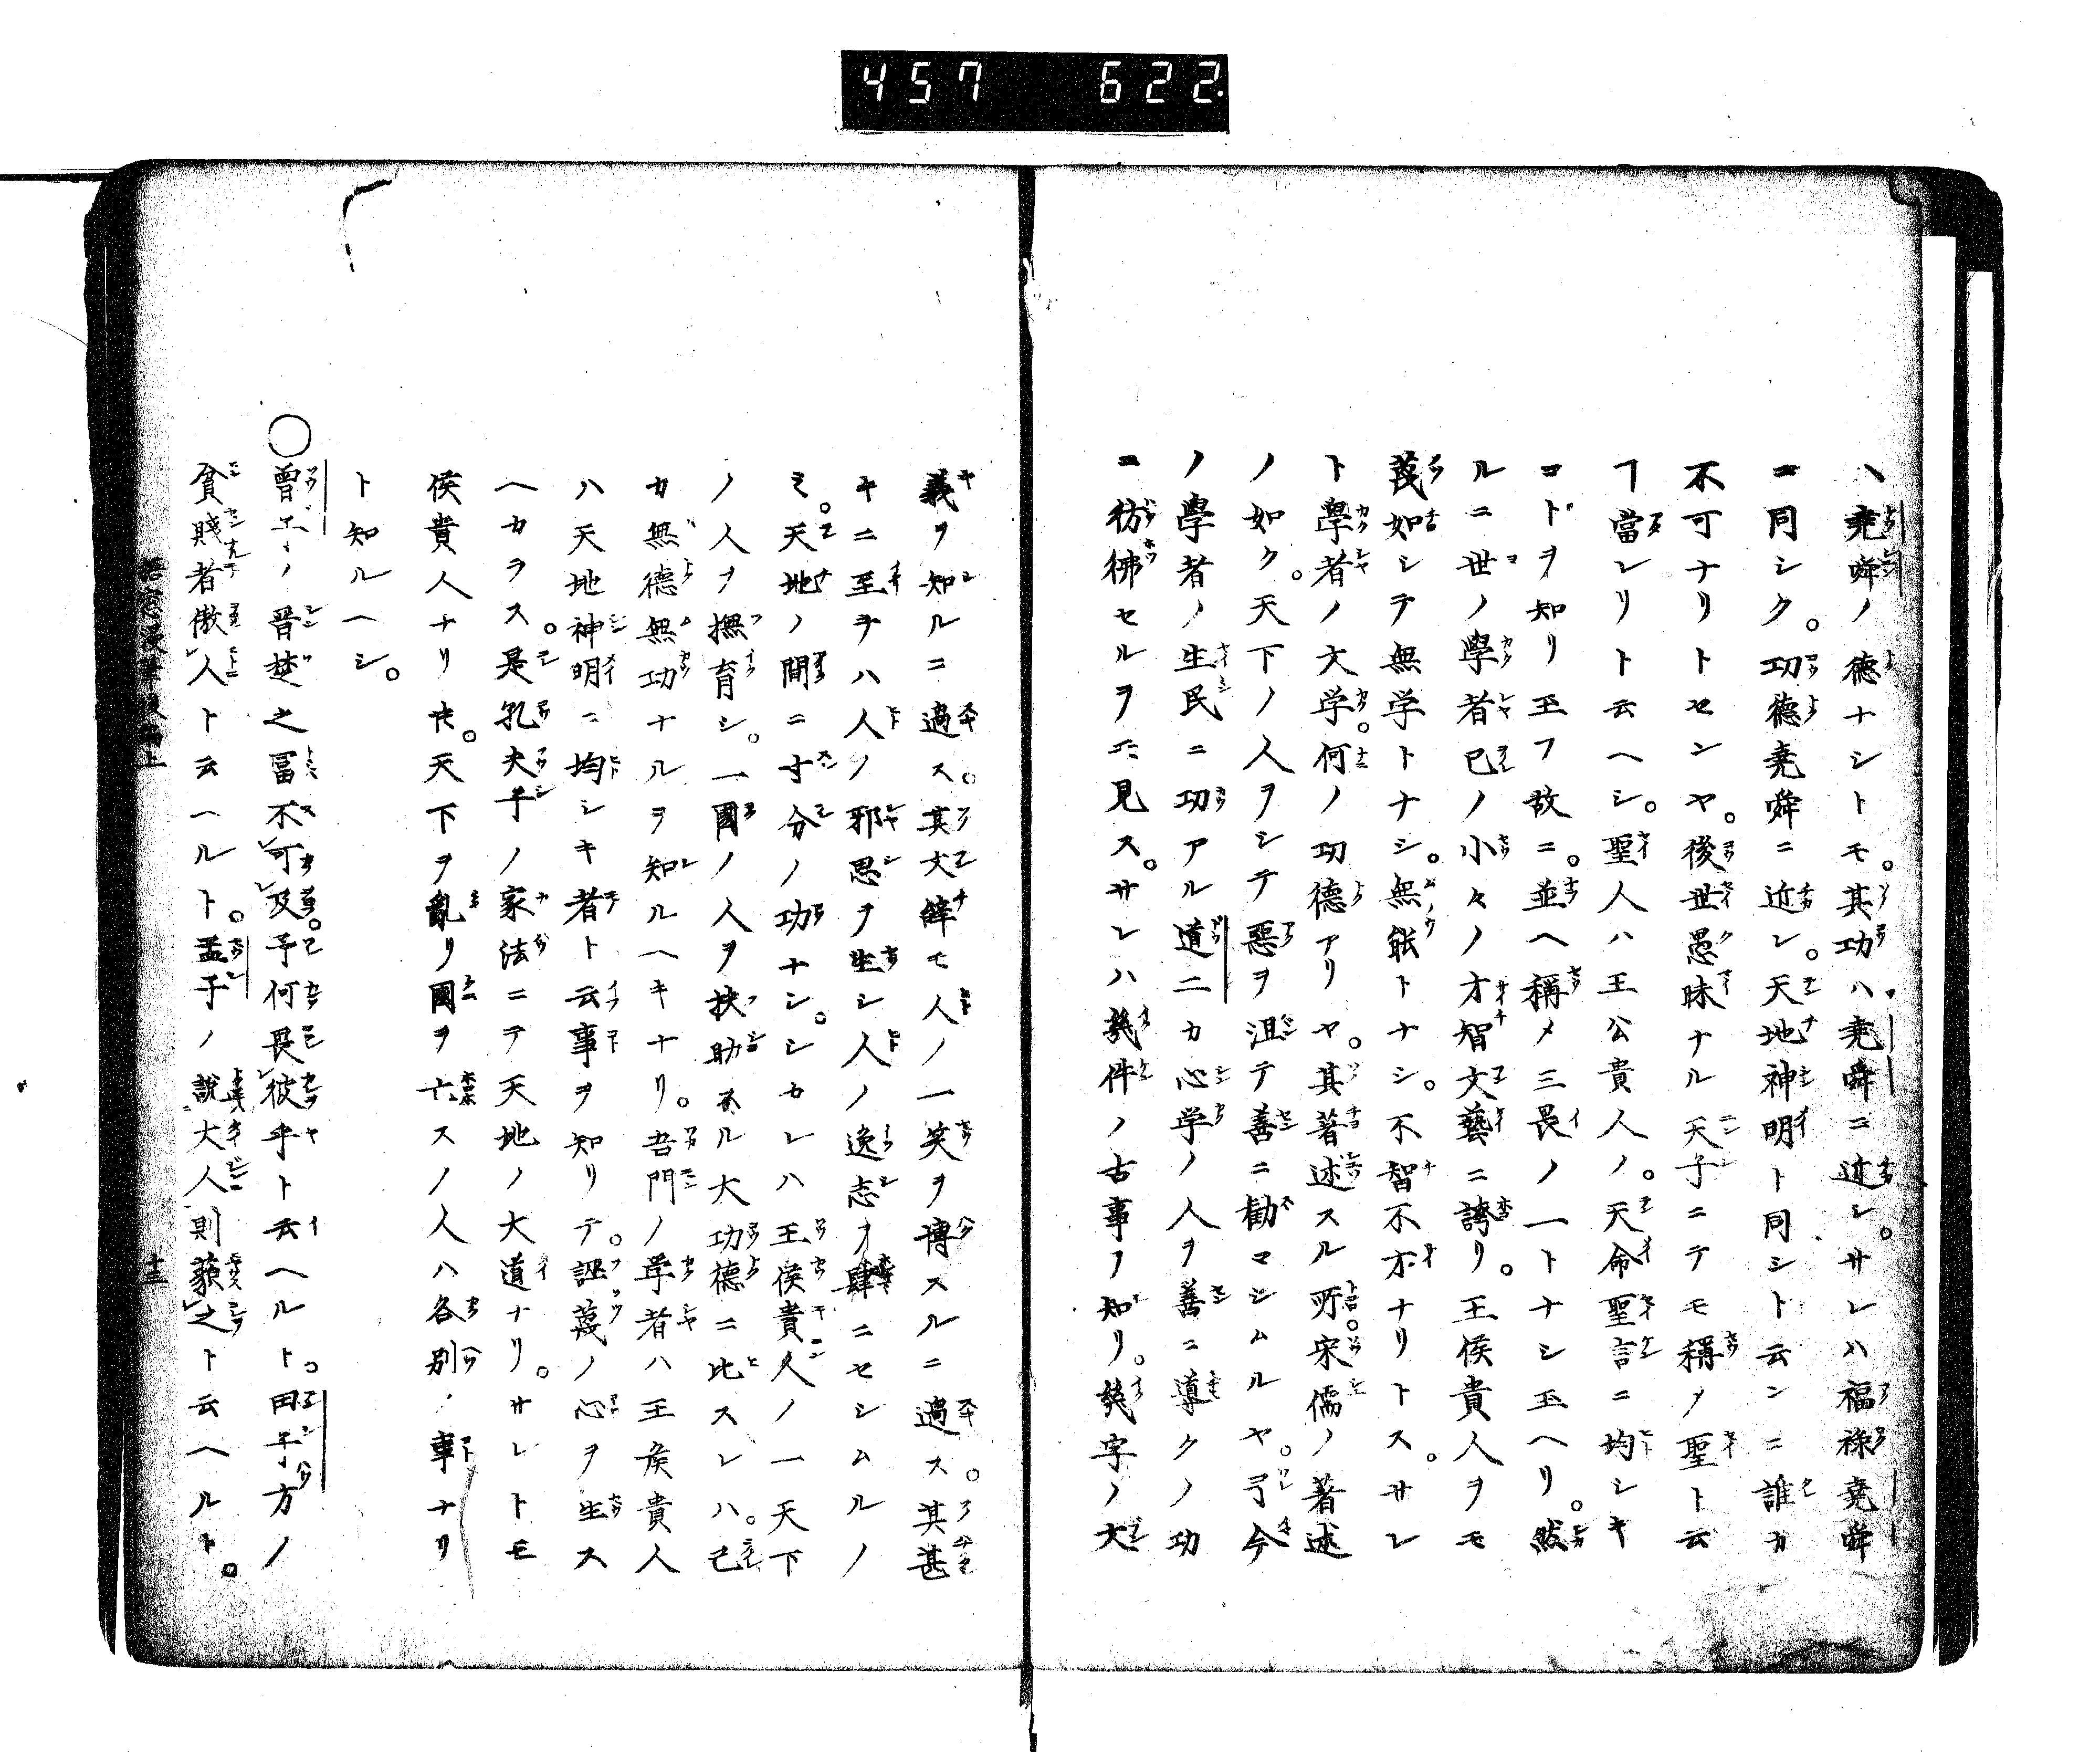 457 622
ハ堯舜ノ徳ナシトモ。其功ハ堯舜ニ近シ。サレハ福祿堯舜
ニ同シク。功德堯舜ニ近シ。天地神明ト同シト云ンニ誰カ
不可ナリトセンヤ。後世愚昧ナル天子ニテモ稱メ聖ト云
フ當レリト云ヘシ。聖人ハ王公貴人ノ。天命聖言ニ均シキ
コトヲ知リ玉フ故ニ。並ヘ稱メ三畏ノ一トナシ玉ヘリ。然
ルニ世ノ學者已ノ小々ノ才智文藝ニ誇リ。王侯貴人ヲモ
蔑如シテ無学トナシ。無能トナシ。不智不才ナリトス。サレ
ト學者ノ文学。何ノ功德アリヤ。其著述スル所宋儒ノ著述
ノ如ク。天下ノ人ヲシテ惡ヲ沮テ善ニ勸マシムルヤ。今
ノ學者ノ生民ニ功アル道二カ心学ノ人ヲ善ニ導クノ功
ニ彷彿セルヲ見ス。サレハ幾件ノ古事ヲ知リ。幾字ノ文
義ヲ知ルニ過ス。其文辭モ人ノ一笑ヲ博スルニ過ス。其甚
キニ至テハ人ノ邪思ヲ生シ人ノ逸志ヲ肆ニセシムルノ
ミ。天地ノ間ニ寸分ノ功ナシ。シカレハ王侯貴人ノ一天下
ノ人ヲ撫育シ。一國ノ人ヲ扶助スル大功德ニ比スレハ。己
カ無德無功ナルヲ知ルヘキナリ。吾門ノ学者ハ王侯貴人
ハ天地神明ニ均シキ者ト云事ヲ知リテ。誣蔑ノ心ヲ生ス
ヘカラス。是孔夫子ノ家法ニテ天地ノ大道ナリ。サレトモ
侯貴人ナリ共。天下ヲ亂リ國ヲ亡スノ人ハ各別ノ事ナリ
ト知ルヘシ。
○曾子ノ晋楚之冨不可及。予何畏彼乎ト云ヘルト。田子方ノ
貧賤者傲人ト云ヘルト。孟子ノ說大人則藐之ト云ヘルト。
十三